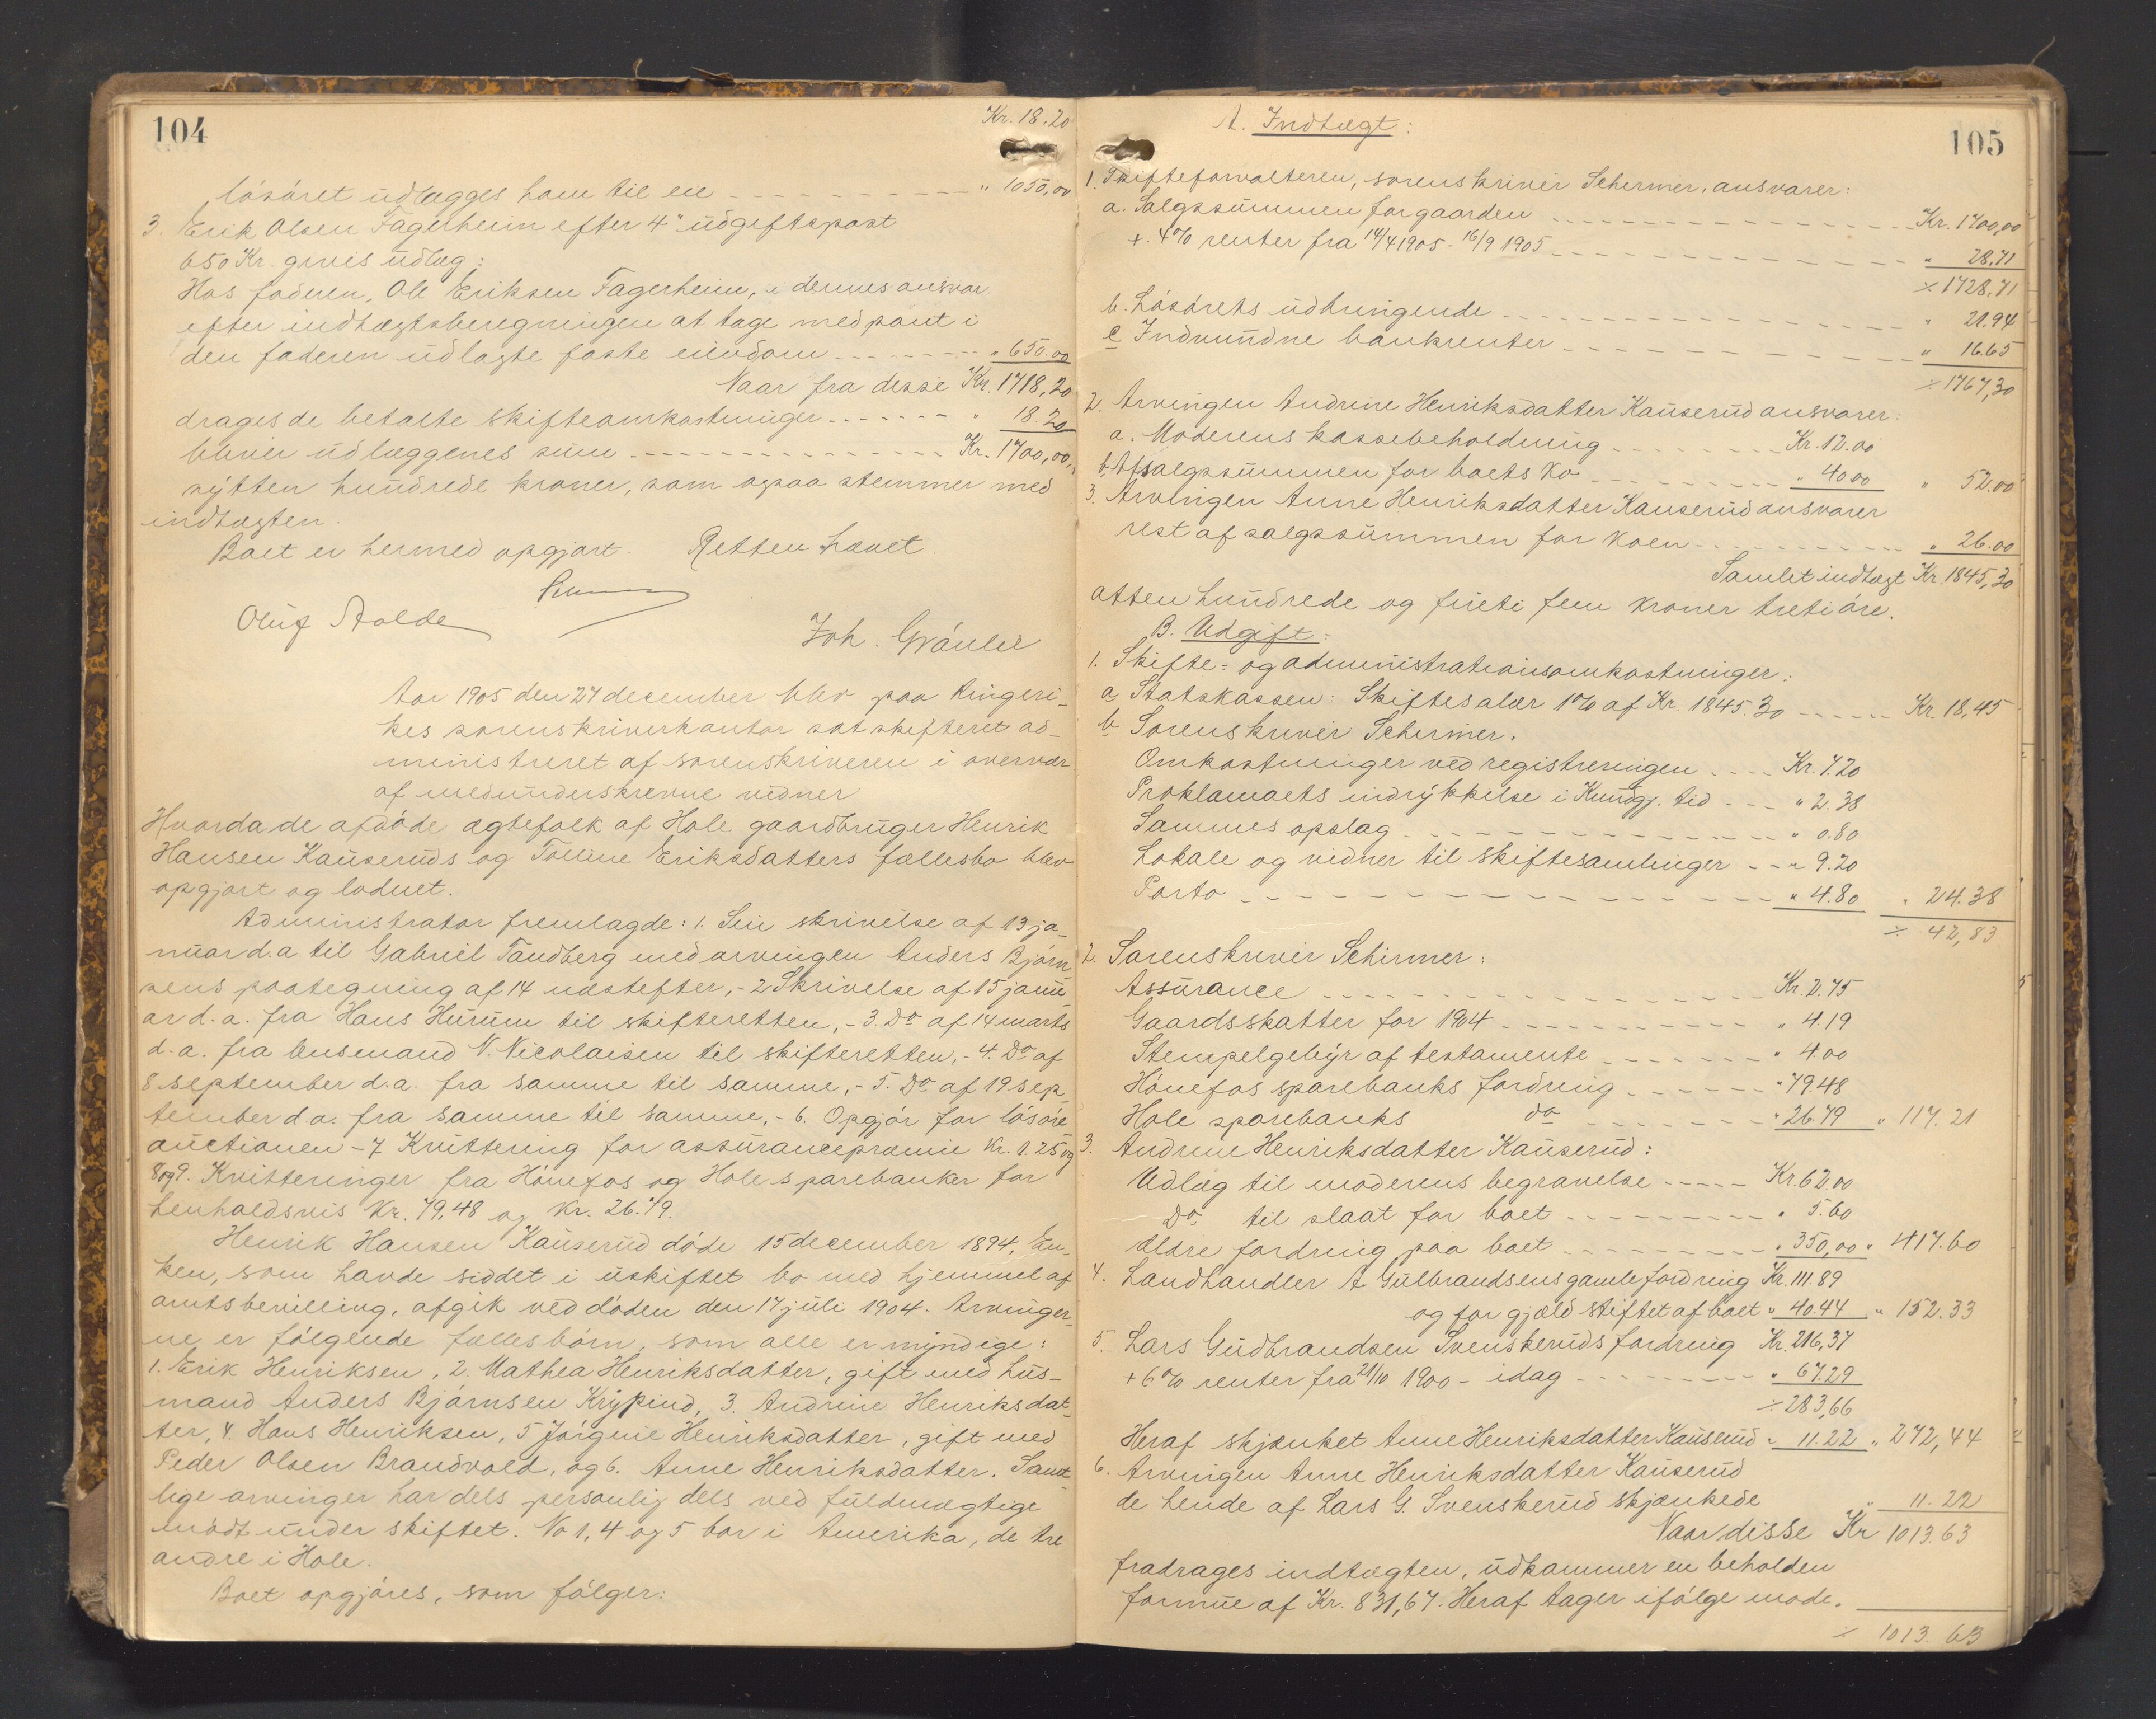 104
Kr. 18.20
løsøret udlægges ham til eie - - - " 1050,00
3. Erik Olsen Fagerheim efter 4" udgiftspost
650 Kr. givis udlæg:
Hos faderen, Ole Eriksen Fagerheim, i dennes ansvar
efter indtægtsberegningen at tage med pant i
den faderen udlagte faste eiendom - - - " 650.00
Naar fra disse Kr. 1718,20
drages de betalte skifteomkostninger - - - " 18.20
bliver udlæggenes sum - - - Kr. 1700,00,
sytten hundrede kroner, som ogsaa stemmer med
indtægten.
Boet er hermed opgjort. Retten hævet.
Oluf Stalde
Joh. Gräuler
Aar 1905 den 27 december blev paa Ringeri-
kes sorenskriverkontor sat skifteret ad-
ministreret af sorenskriveren i overvær
af medunderskrevne vidner
Hvorda de afdøde ægtefolk af Hole gaardbruger Henrik
Hansen Kauseruds og Tolline Eriksdatters fællesbo blev
opgjort og lodnet.
Administrator fremlagde: 1. Sin skrivelse af 13 ja-
nuar d.a. til Gabriel Tandberg med arvingen Anders Bjørn-
sens paategning af 14 næstefter, - 2 Skrivelse af 15 janu-
ar d. a. fra Hans Hurum til skifteretten, - 3 Do af 14 marts
d. a. fra lensmand N. Nicolaisen til skifteretten, - 4. Do af
8 september d.a. fra samme til samme, - 5. Do af 19 sep-
tember d.a. fra samme til samme, - 6. Opgjør for løsøre-
auctionen - 7 Kvittering for assurancepræmie Kr. 1.25 og
8 og 9. Kvitteringer fra Hønefos og Hole sparebanker for
henholdsvis Kr. 79,48 og Kr. 26.79.
Henrik Hansen Kauserud døde 15 december 1894. En-
ken, som havde siddet i uskiftet bo med hjemmel af
amtsbevilling, afgik ved døden den 17 juli 1904. Arvinger-
ne er følgende fællesbørn, som alle er myndige:
1. Erik Henriksen, 2. Mathea Henriksdatter, gift med hus-
mand Anders Bjørnsen Krypind, 3. Andrine Henriksdat-
ter, 4. Hans Henriksen, 5 Jørgine Henriksdatter, gift med
Peder Olsen Brandvold, og 6. Anne Henriksdatter. Samt-
lige arvinger har dels personlig dels ved fuldmægtige
mødt under skiftet. No 1, 4 og 5 bor i Amerika, de tre
andre i Hole.
Boet opgjøres, som følger:
105
A. Indtægt:
1. Skifteforvalteren, sorenskriver Schirmer, ansvarer:
a. Salgssummen for gaarden - - - Kr. 1700,00
+ 4% renter fra 14/4 1905 - 16/9 1905 - - - " 28,71
÷ 1728,71
b. Løsørets udbringende - - - " 21.94
c Indvundne bankrenter - - - " 16.65
÷ 1767,30
2. Arvingen Andrine Henriksdatter Kauserud ansvarer:
a. Moderens kassebeholdning - - - Kr. 12.00
b. Af salgssummen for boets ko - - - " 40.00 " 52.00
3. Arvingen Anne Henriksdatter Kauserud ansvarer
rest af salgssummen for koen - - - " 26.00
Samlet indtægt Kr. 1845,30
atten hundrede og firti fem kroner treti øre.
B. Udgift:
1. Skifte- og administrationsomkostninger:
a Statskassen: Skiftesalær 1% af Kr. 1845.30 - - - Kr. 18,45
b Sorenskriver Schirmer.
Omkostninger ved registreringen - - - Kr. 7.20
Proklamaets indrykkelse i Kundgj. tid - - - " 2.38
Sammes opslag - - - " 0.80
Lokale og vidner til skiftesamlinger - - - " 9.20
Porto - - - " 4.80 " 24.38
÷ 42,83
2. Sorenskriver Schirmer:
Assurance - - - Kr. 2.75
Gaardsskatter for 1904 - - - " 4.19
Stempelgebyr af testamente - - - " 4.00
Hønefos sparebanks fordring - - - " 79.48
Hole sparebanks do - - - " 26.79 " 117.21
3. Andrine Henriksdatter Kauserud:
Udlæg til moderens begravelse - - - Kr. 62.00
Do til slaat for boet - - - " 5.60
Ældre fordring paa boet - - - " 350,00 " 417.60
4. Landhandler A. Gulbrandsens gamle fordring Kr. 111.89
og for gjæld stiftet af boet " 40.44 " 152.33
5. Lars Gudbrandsen Svenskeruds fordring Kr. 216,37
+ 6% renter fra 21/10 1900 - idag - - - " 67.29
÷ 283,66
Heraf skjænket Anne Henriksdatter Kauserud " 11.22 " 272,44
6. Arvingen Anne Henriksdatter Kauserud
de hende af Lars G. Svenskerud skjænkede " 11.22
Naar disse Kr 1013.63
fradrages indtægten, udkommer en beholden
formue af Kr. 831,67. Heraf tager ifølge mode-
÷ 1013.63